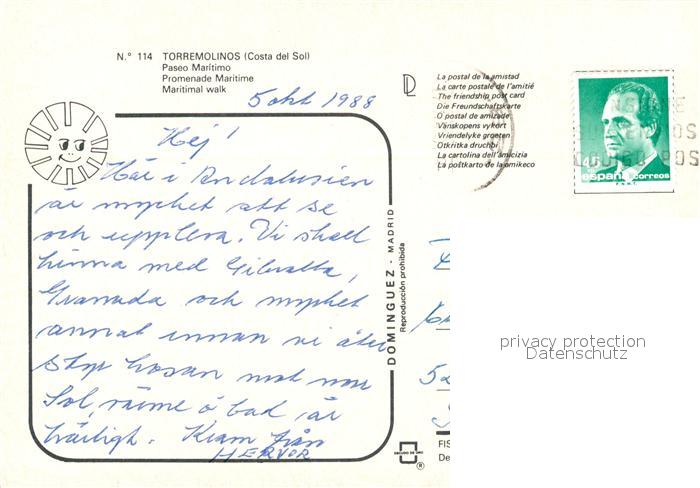 N.° 114 TORREMOLINOS (Costa del Sol)
Paseo Marítimo
Promenade Maritime
Maritimal walk
5 okt 1988
Hej!
Här i Andalusien
är mycket att se
och uppleva. Vi skall
hinna med Gibralta,
Granada och mycket
annat innan vi åter
styr kosan mot norr
Sol, värme o bad är
härligt. Kram från
HERVOR
DOMINGUEZ - MADRID
Reproducción prohibida
La postal de la amistad
La carte postale de l'amitié
The friendship post card
Die Freundschaftskarte
O postal de amizade
Vänskapens vykort
Vriendelyke groeten
Otkritka druchbi
La cartolina dell'amicizia
La poŝtkarto de la amikeco
45
españa correos
F.N.M.T.
CODIGO POS
privacy protection
Datenschutz
ESCUDO DE ORO
®
FIS
De